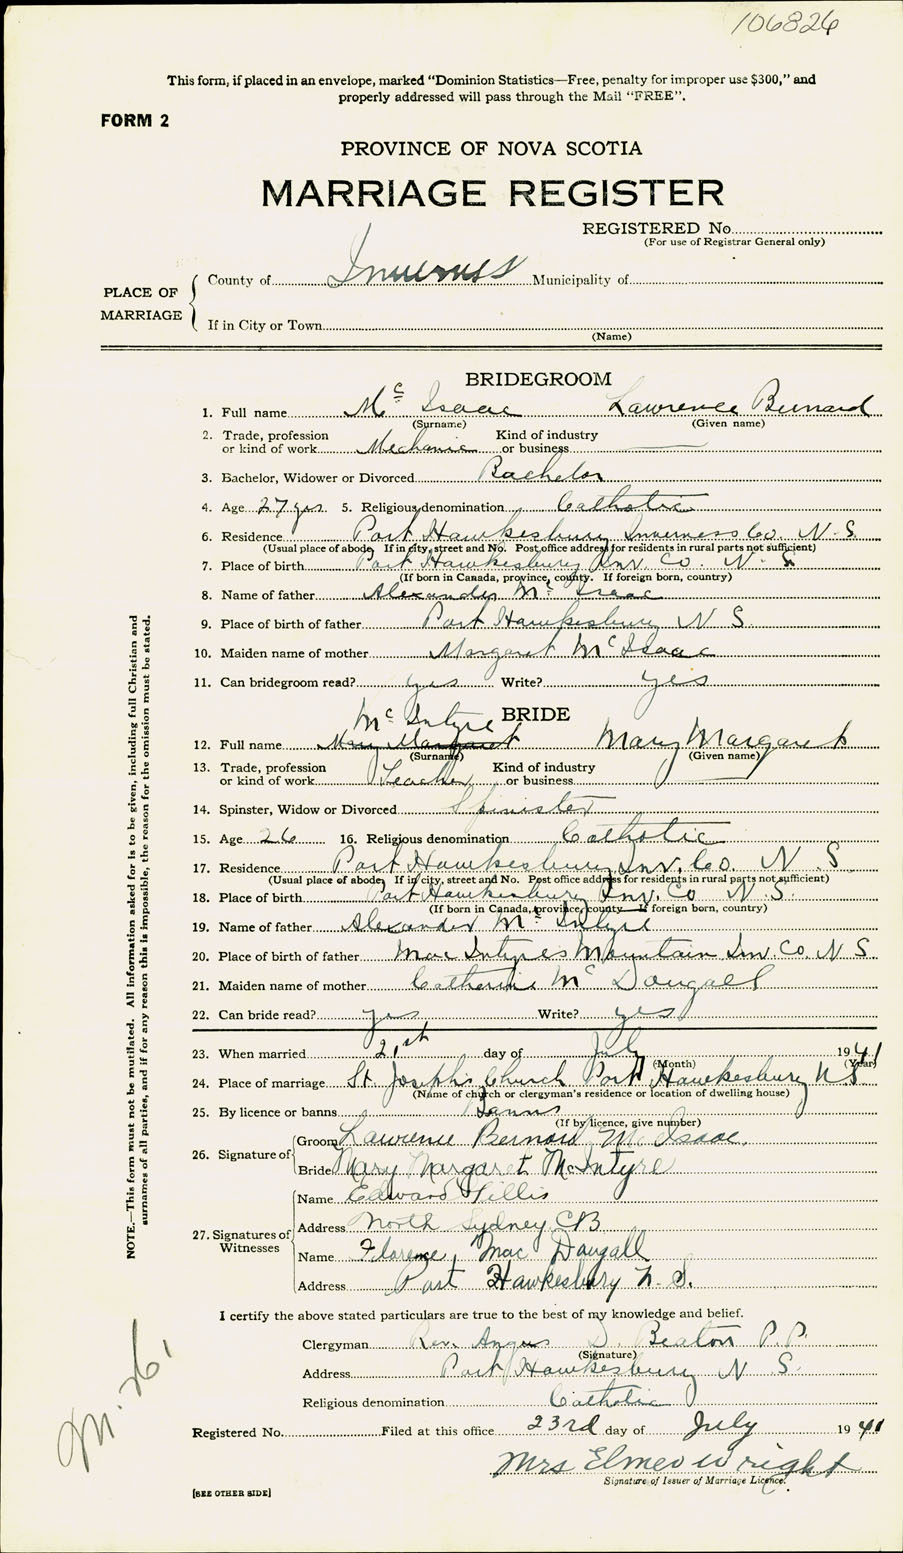 106826
This form, if placed in an envelope, marked "Dominion Statistics—Free, penalty for improper use $300," and
properly addressed will pass through the Mail "FREE".
FORM 2
PROVINCE OF NOVA SCOTIA
MARRIAGE REGISTER
REGISTERED No
(For use of Registrar General only)
PLACE OF MARRIAGE
County of Inverness Municipality of
If in City or Town
(Name)
BRIDEGROOM
1. Full name Mc Isaac Lawrence Bernard
(Surname) (Given name)
2. Trade, profession or kind of work Mechanic Kind of industry or business
3. Bachelor, Widower or Divorced Bachelor
4. Age 27 yrs 5. Religious denomination Catholic
6. Residence Port Hawkesbury Inverness Co. N.S.
(Usual place of abode. If in city, street and No. Post office address for residents in rural parts not sufficient)
7. Place of birth Port Hawkesbury Inv. Co. N.S.
(If born in Canada, province, county. If foreign born, country)
8. Name of father Alexander Mc Isaac
9. Place of birth of father Port Hawkesbury N S.
10. Maiden name of mother Margaret McIsaac
11. Can bridegroom read? yes Write? yes
BRIDE
Mc Intyre
12. Full name Mary Margaret Mary Margaret
(Surname) (Given name)
13. Trade, profession or kind of work Teacher Kind of industry or business
14. Spinster, Widow or Divorced Spinister
15. Age 26 16. Religious denomination Catholic
17. Residence Port Hawkesbury Inv. Co. N S
(Usual place of abode. If in city, street and No. Post office address for residents in rural parts not sufficient)
18. Place of birth Port Hawkesbury Inv. Co N.S.
(If born in Canada, province, county. If foreign born, country)
19. Name of father Alexander Mc Intyre
20. Place of birth of father Mac Intyres Mountain Inv. Co. N S.
21. Maiden name of mother Catherine Mc Dougall
22. Can bride read? yes Write? yes
23. When married 21st day of July 1941
(Month) (Year)
24. Place of marriage St. Joseph's Church Port Hawkesbury N S
(Name of church or clergyman's residence or location of dwelling house)
25. By licence or banns Banns
(If by licence, give number)
26. Signature of Groom Lawrence Bernard McIsaac.
Bride Mary Margaret McIntyre
27. Signatures of Witnesses
Name Edward Pillis
Address North Sydney CB
Name Florence Mac Dougall
Address Port Hawkesbury N.S.
I certify the above stated particulars are true to the best of my knowledge and belief.
Clergyman Rev. Angus D. Beaton P.P.
(Signature)
Address Port Hawkesbury N S.
Religious denomination Catholic
Registered No. Filed at this office 23rd day of July 1941
Mrs Elmer Wright
Signature of Issuer of Marriage Licence.
[SEE OTHER SIDE]
NOTE.—This form must not be mutilated. All information asked for is to be given, including full Christian and
surnames of all parties, and if for any reason this is impossible, the reason for the omission must be stated.